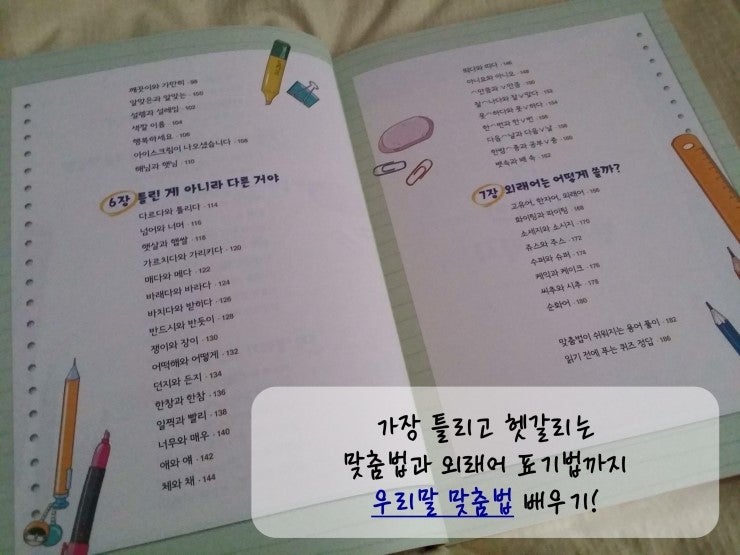 깨끗이와 가만히 · 98
알맞은과 알맞는 · 100
설렘과 설레임 · 102
색깔 이름 · 104
행복하세요 · 106
아이스크림이 나오셨습니다 · 108
해님과 햇님 · 110
6장 틀린 게 아니라 다른 거야
다르다와 틀리다 · 114
넘어와 너머 · 116
햇살과 햅쌀 · 118
가르치다와 가리키다 · 120
매다와 메다 · 122
바래다와 바라다 · 124
바치다와 받히다 · 126
반드시와 반듯이 · 128
쟁이와 장이 · 130
어떡해와 어떻게 · 132
던지와 든지 · 134
한창과 한참 · 136
일찍과 빨리 · 138
너무와 매우 · 140
애와 얘 · 142
체와 채 · 144
띄다와 띠다 · 146
아니요와 아니오 · 148
⌒만큼과 ∨만큼 · 150
잘⌒나다와 잘∨났다 · 152
못⌒하다와 못∨하다 · 154
한⌒번과 한∨번 · 156
다음⌒날과 다음∨날 · 158
안밤⌒중과 공부∨중 · 160
뱃속과 배 속 · 162
7장 외래어는 어떻게 쓸까?
고유어, 한자어, 외래어 · 166
화이팅과 파이팅 · 168
소세지와 소시지 · 170
쥬스와 주스 · 172
수퍼와 슈퍼 · 174
케익과 케이크 · 176
씨추와 시추 · 178
순화어 · 180
맞춤법이 쉬워지는 용어 풀이 · 182
읽기 전에 푸는 퀴즈 정답 · 186
가장 틀리고 헷갈리는
맞춤법과 외래어 표기법까지
우리말 맞춤법 배우기!